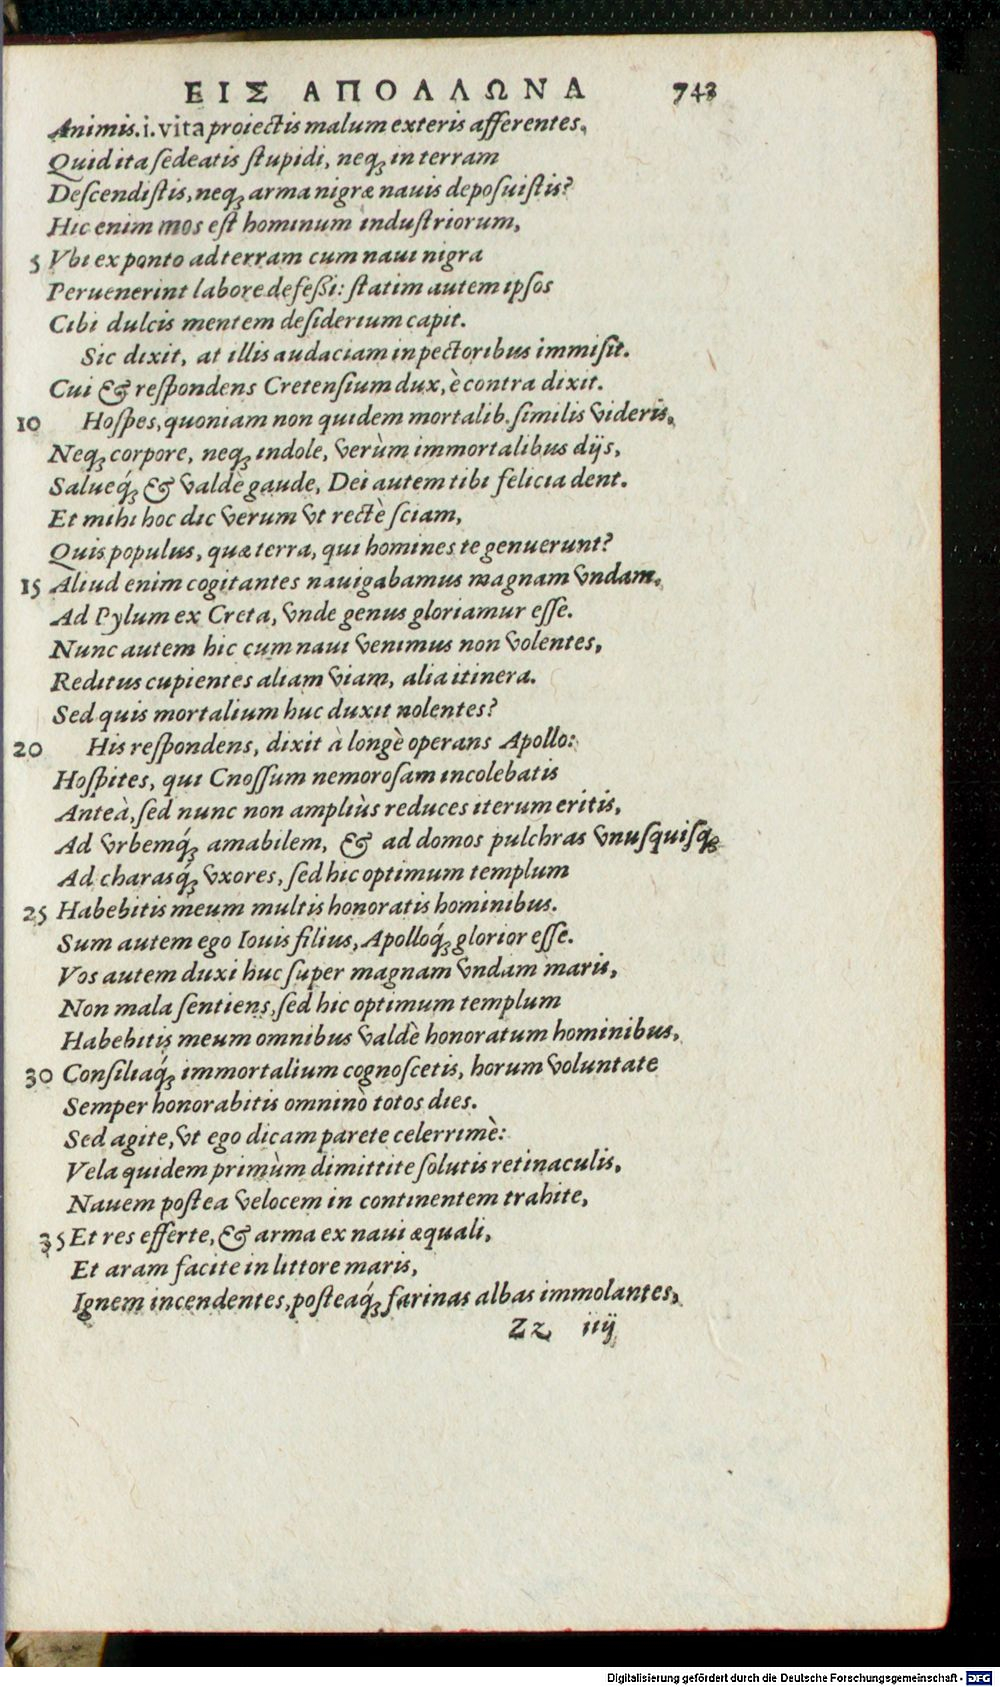 ΕΙΣ ΑΠΟΛΛΩΝΑ 743
Animis.i.vita proiectis malum exteris afferentes,
Quid ita ſedeatis ſtupidi, neqꝫ in terram
Deſcendiſtis, neqꝫ arma nigræ nauis depoſuiſtis?
Hic enim mos eſt hominum induſtriorum,
5 Vbi ex ponto ad terram cum naui nigra
Peruenerint labore defeßi: ſtatim autem ipſos
Cibi dulcis mentem deſiderium capit.
Sic dixit, at illis audaciam in pectoribus immiſit.
Cui & reſpondens Cretenſium dux, è contra dixit.
10 Hoſpes, quoniam non quidem mortalib. ſimilis videris,
Neqꝫ corpore, neqꝫ indole, verùm immortalibus dijs,
Salueq́ꝫ & valdè gaude, Dei autem tibi felicia dent.
Et mihi hoc dic verum vt rectè ſciam,
Quis populus, quæ terra, qui homines te genuerunt?
15 Aliud enim cogitantes nauigabamus magnam vndam,
Ad Pylum ex Creta, vnde genus gloriamur eſſe.
Nunc autem hic cum naui venimus non volentes,
Reditus cupientes aliam viam, alia itinera.
Sed quis mortalium huc duxit nolentes?
20 His reſpondens, dixit à longè operans Apollo:
Hoſpites, qui Cnoſſum nemoroſam incolebatis
Anteà, ſed nunc non ampliùs reduces iterum eritis,
Ad vrbemq́ꝫ amabilem, & ad domos pulchras vnuſquiſqꝫ
Ad charasq́ꝫ vxores, ſed hic optimum templum
25 Habebitis meum multis honoratis hominibus.
Sum autem ego Iouis filius, Apolloq́ꝫ glorior eſſe.
Vos autem duxi huc ſuper magnam vndam maris,
Non mala ſentiens, ſed hic optimum templum
Habebitis meum omnibus valdè honoratum hominibus,
30 Conſiliaq́ꝫ immortalium cognoſcetis, horum voluntate
Semper honorabitis omninò totos dies.
Sed agite, vt ego dicam parete celerrimè:
Vela quidem primùm dimittite ſolutis retinaculis,
Nauem poſtea velocem in continentem trahite,
35 Et res efferte, & arma ex naui æquali,
Et aram facite in littore maris,
Ignem incendentes, poſteaq́ꝫ farinas albas immolantes,
Zz iiij
Digitalisierung gefördert durch die Deutsche Forschungsgemeinschaft - DFG